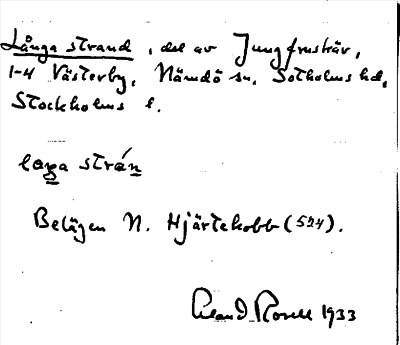 Långa strand, del av Jungfruskär,
1-4 Västerby, Nämdö sn, Sotholms hd,
Stockholms l.
laga strán
Belägen N. Hjärtekobb (524).
Rosell 1933